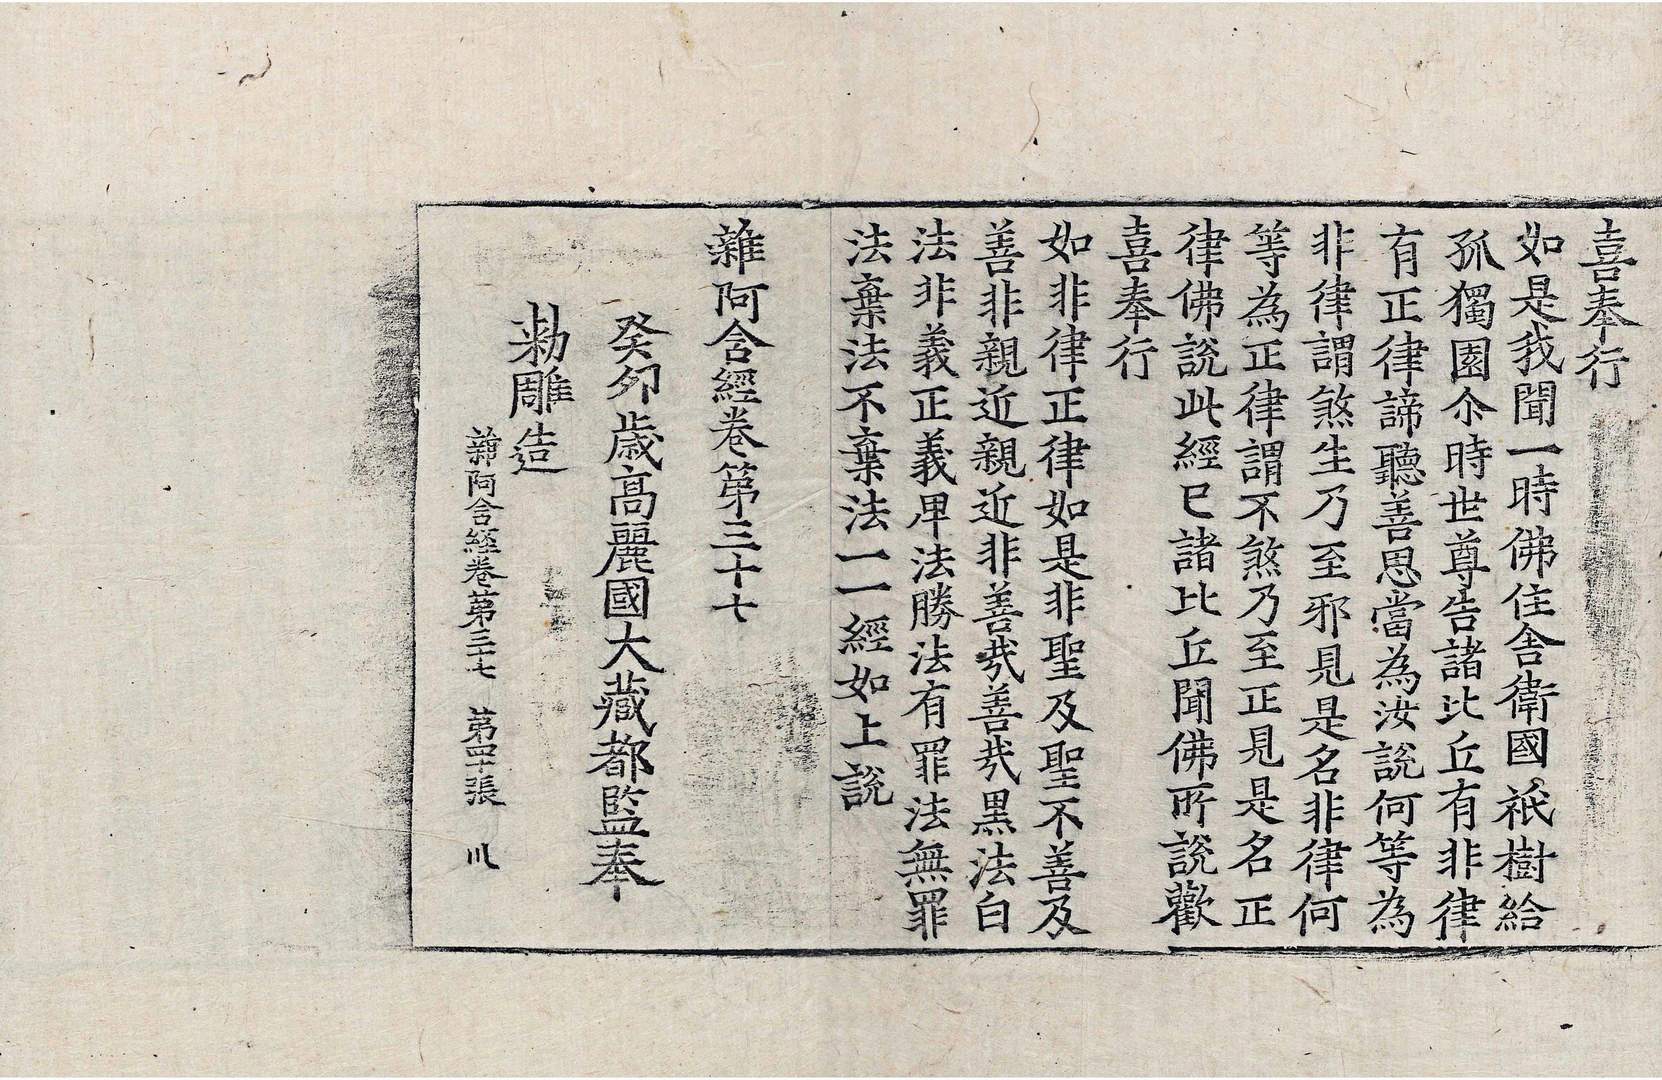 喜奉行
如是我聞一時佛住舎衛國祇樹給
孤獨園尒時世尊告諸比丘有非律
有正律諦聽善思當為汝說何等為
非律謂煞生乃至邪見是名非律何
等為正律謂不煞乃至正見是名正
律佛說此經已諸比丘聞佛所說歡
喜奉行
如非律正律如是非聖及聖不善及
善非親近親近非善㢤善㢤黒法白
法非義正義卑法勝法有罪法無罪
法棄法不棄法一一經如上說
雜阿含經卷第三十七
癸卯歳高麗國大藏都監奉
勅雕造
雜阿含經卷第三十七 第四十張 川